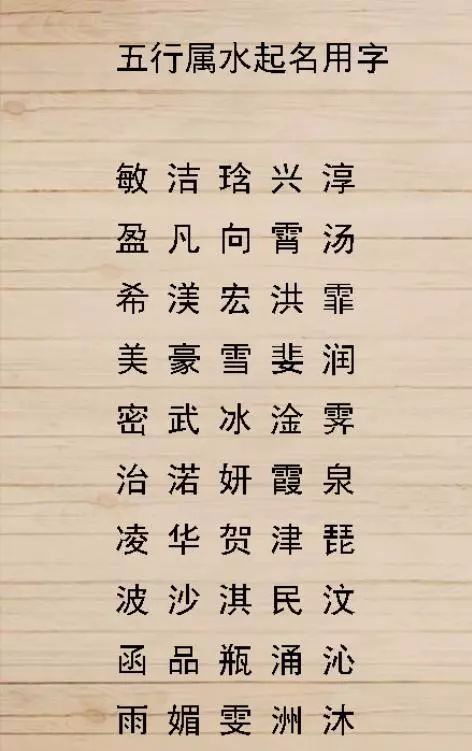 五行属水起名用字
敏 洁 琀 兴 淳
盈 凡 向 霄 汤
希 渼 宏 洪 霏
美 豪 雪 斐 润
密 武 冰 淦 霁
治 渃 妍 霞 泉
凌 华 贺 津 琵
波 沙 淇 民 汶
函 品 瓶 涌 沁
雨 媚 雯 洲 沐